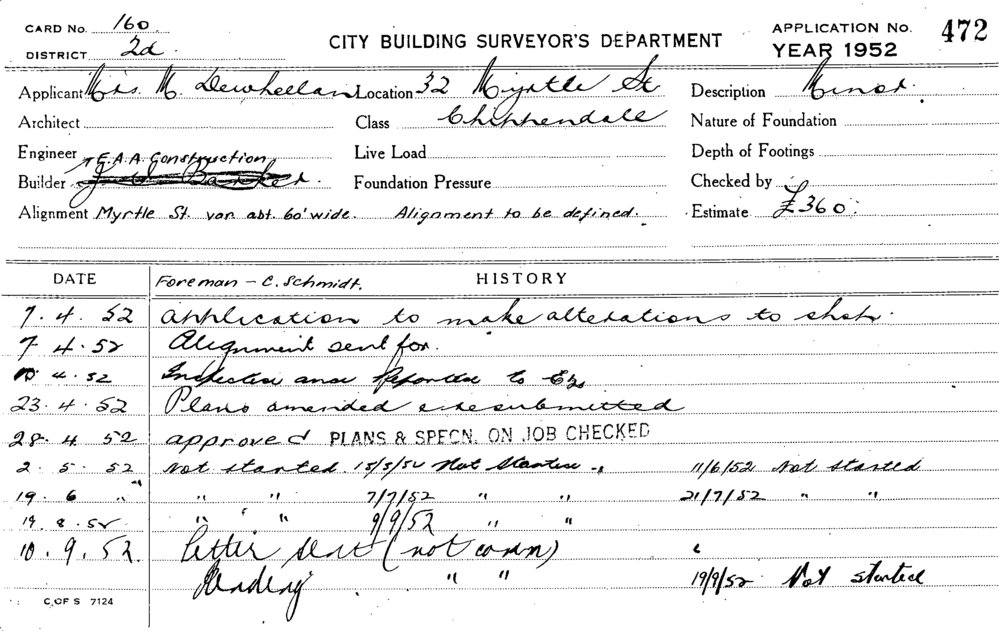 CARD No. 160.
DISTRICT 2d.
CITY BUILDING SURVEYOR'S DEPARTMENT
APPLICATION No. 472
YEAR 1952
Applicant Mrs. M. Dewhellan Location 32 Myrtle St Description Minor.
Architect Class Chippendale Nature of Foundation
Engineer E.A.A. Construction Live Load Depth of Footings
Builder J. Barker. Foundation Pressure Checked by
Alignment Myrtle St. var. abt. 60' wide. Alignment to be defined. Estimate £360.
DATE Foreman - C. Schmidt. HISTORY
7. 4. 52 Application to make alterations to shop.
7. 4. 52 Alignment sent for.
4. 52 Inspection and Reported to
23. 4. 52 Plans amended & resubmitted
28. 4 52 approved PLANS & SPECN. ON JOB CHECKED
2. 5. 52 Not started. 15/5/52 Not Started 11/6/52 Not started
19. 6 " " " 7/7/52 " " 21/7/52 " "
19. 8. 52 " " 9/9/52 " "
10. 9. 52 Letter sent (not comm)
Pending " " 19/9/52 Not started
C. OF S 7124